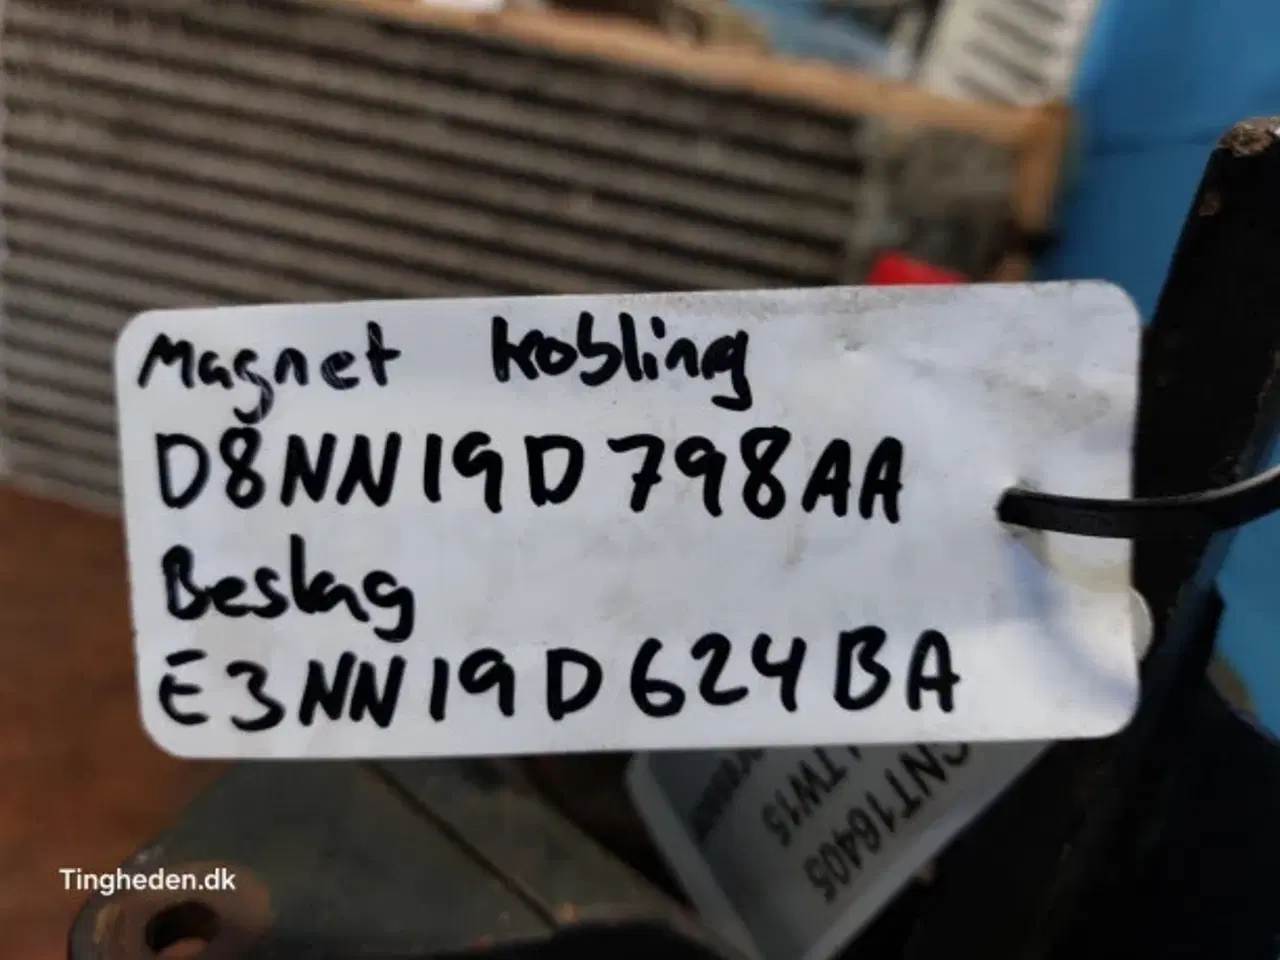 Magnet kobling
D8NN19D798AA
Beslag
E3NN19D624BA
CNT16405
TW15
Tingheden.dk